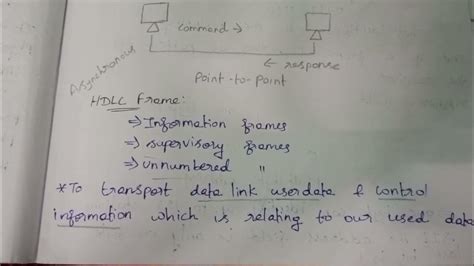 command →
← response
Asynchronous
Point-to-point
HDLC Frame:
⇒ Information frames
⇒ supervisory frames
⇒ unnumbered "
* To transport data link userdata & control
information which is relating to our used data